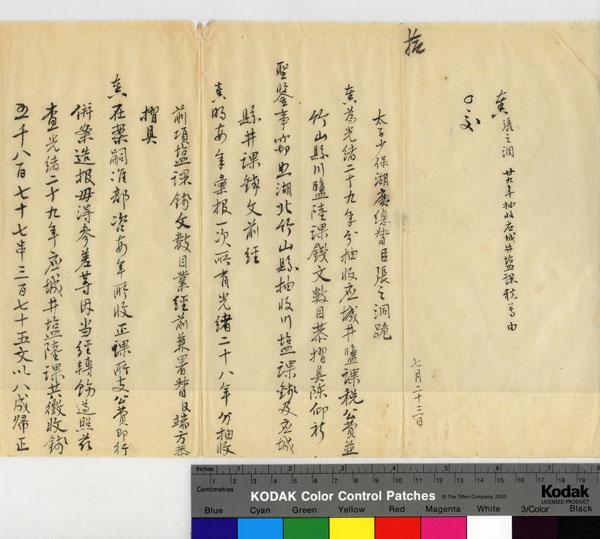 抬
奏 張之洞 廿九年抽收应城井盐課稅等由
七月二十三日
太子少保湖廣總督臣張之洞跪
奏为光緒二十九年分抽收应城井鹽課稅公費並
竹山縣川鹽陸課錢文數目恭摺具陳仰祈
聖鉴事窃照湖北竹山縣抽收川盐課錢及应城
縣井課錢文前經
奏明每年彙报一次所有光緒二十八年分抽收
前項盐課錢文數目業經前兼署督臣端方恭
摺具
奏在案嗣准部咨每年所收正課所支公費即行
併案造报毋得參差等因当經轉飭遵照茲
查光緒二十九年应城井盐陸課共徵收錢
五千八百七十七串三百七十五文以八成歸正
Inches
Centimetres
KODAK Color Control Patches
© The Tiffen Company, 2000
Kodak
LICENSED PRODUCT
Blue Cyan Green Yellow Red Magenta White 3/Color Black